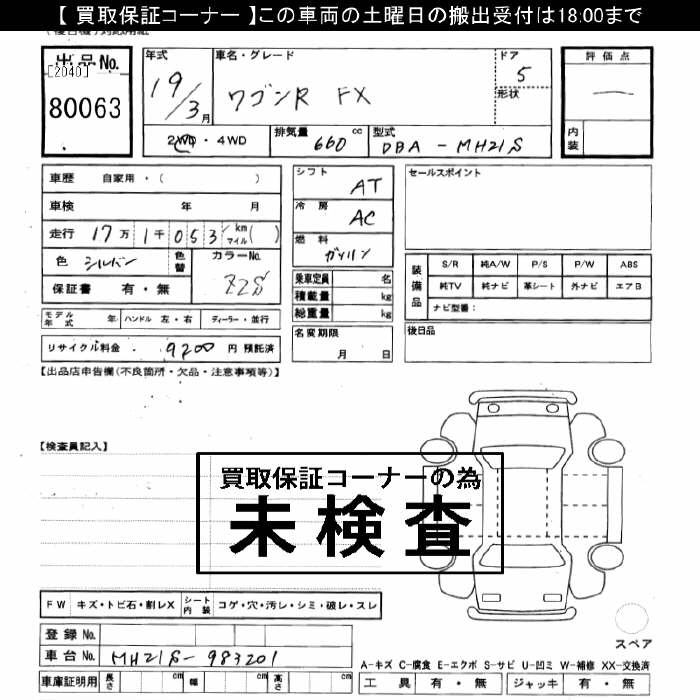 【 買取保証コーナー 】この車両の土曜日の搬出受付は18:00まで
出品No.
[2040]
80063
年式
19/3月
車名・グレード
ワゴンR FX
ドア
5
形状
2WD・4WD
排気量 660 cc
型式 DBA-MH21S
評価点
―
内装
車歴 自家用・( )
車検 年 月
走行 17万1千053 km マイル( )
色 シルバー
色替
カラーNo.
Z2S
保証書 有・無
モデル年式 年
ハンドル 左・右
ディーラー・並行
リサイクル料金 9200 円 預託済
シフト
AT
冷房
AC
燃料
ガソリン
乗車定員 名
積載量 kg
総重量 kg
名変期限
月 日
セールスポイント
装備品
S/R 純A/W P/S P/W ABS
純TV 純ナビ 革シート 外ナビ エアB
ナビ型番:
後日品
【出品店申告欄(不良箇所・欠品・注意事項等)】
【検査員記入】
買取保証コーナーの為
未検査
FW キズ・トビ石・割レX
シート内装 コゲ・穴・汚レ・シミ・破レ・スレ
登録No.
車台No. MH21S-983201
車庫証明用 長さ cm 幅 cm 高さ cm
スペア
A-キズ C-腐食 E-エクボ S-サビ U-凹ミ W-補修 XX-交換済
工具 有・無 ジャッキ 有・無